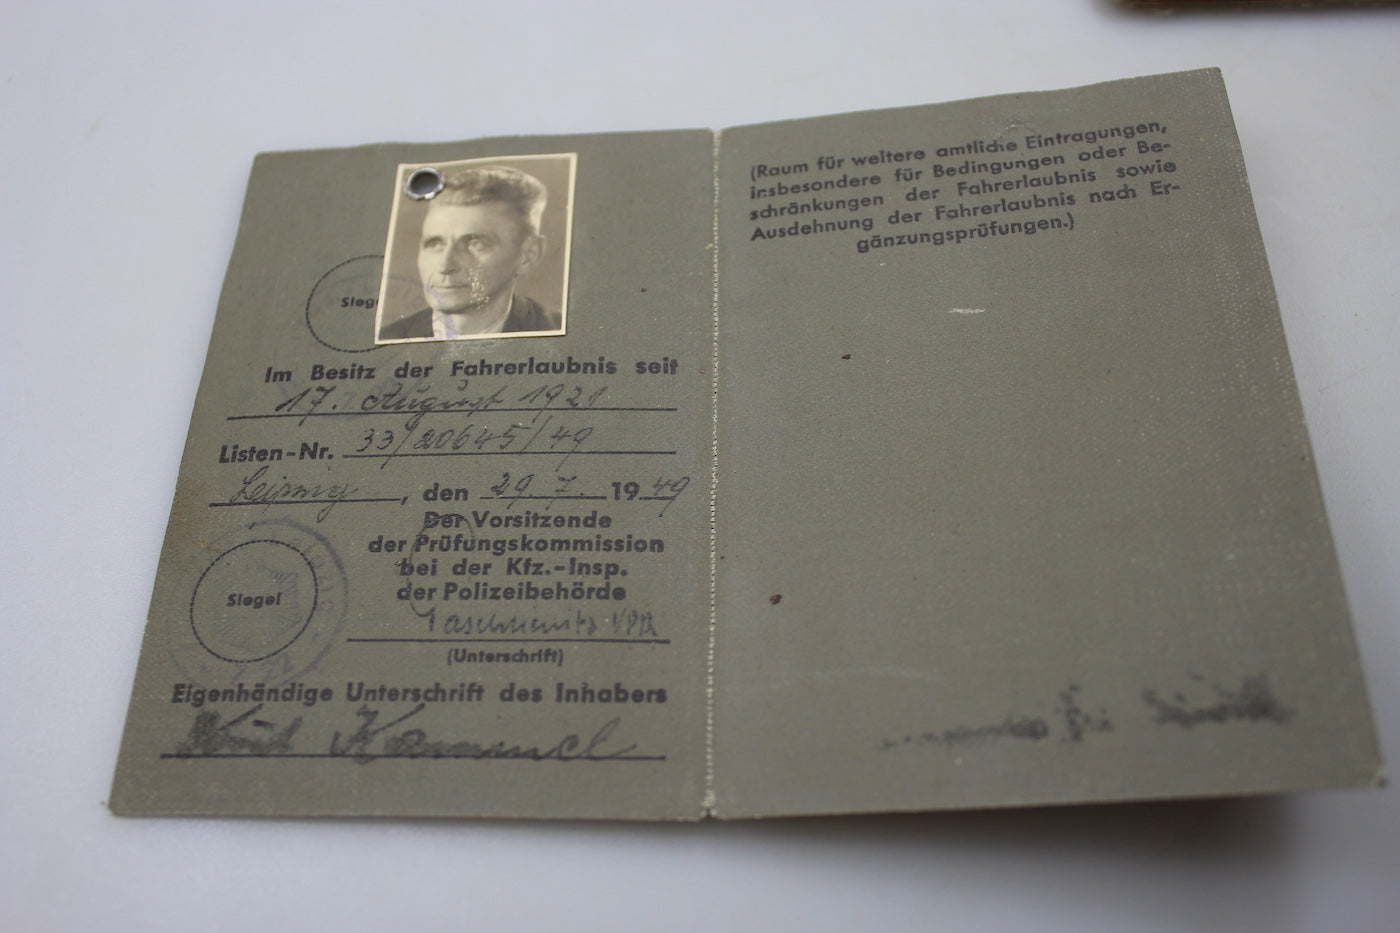 Siegel
Im Besitz der Fahrerlaubnis seit
17. August 1921
Listen-Nr. 33/20645/49
Leipzig, den 29. 7. 1949
Der Vorsitzende
der Prüfungskommission
bei der Kfz.-Insp.
der Polizeibehörde
Siegel
(Unterschrift)
Eigenhändige Unterschrift des Inhabers
(Raum für weitere amtliche Eintragungen,
insbesondere für Bedingungen oder Be-
schränkungen der Fahrerlaubnis sowie
Ausdehnung der Fahrerlaubnis nach Er-
gänzungsprüfungen.)